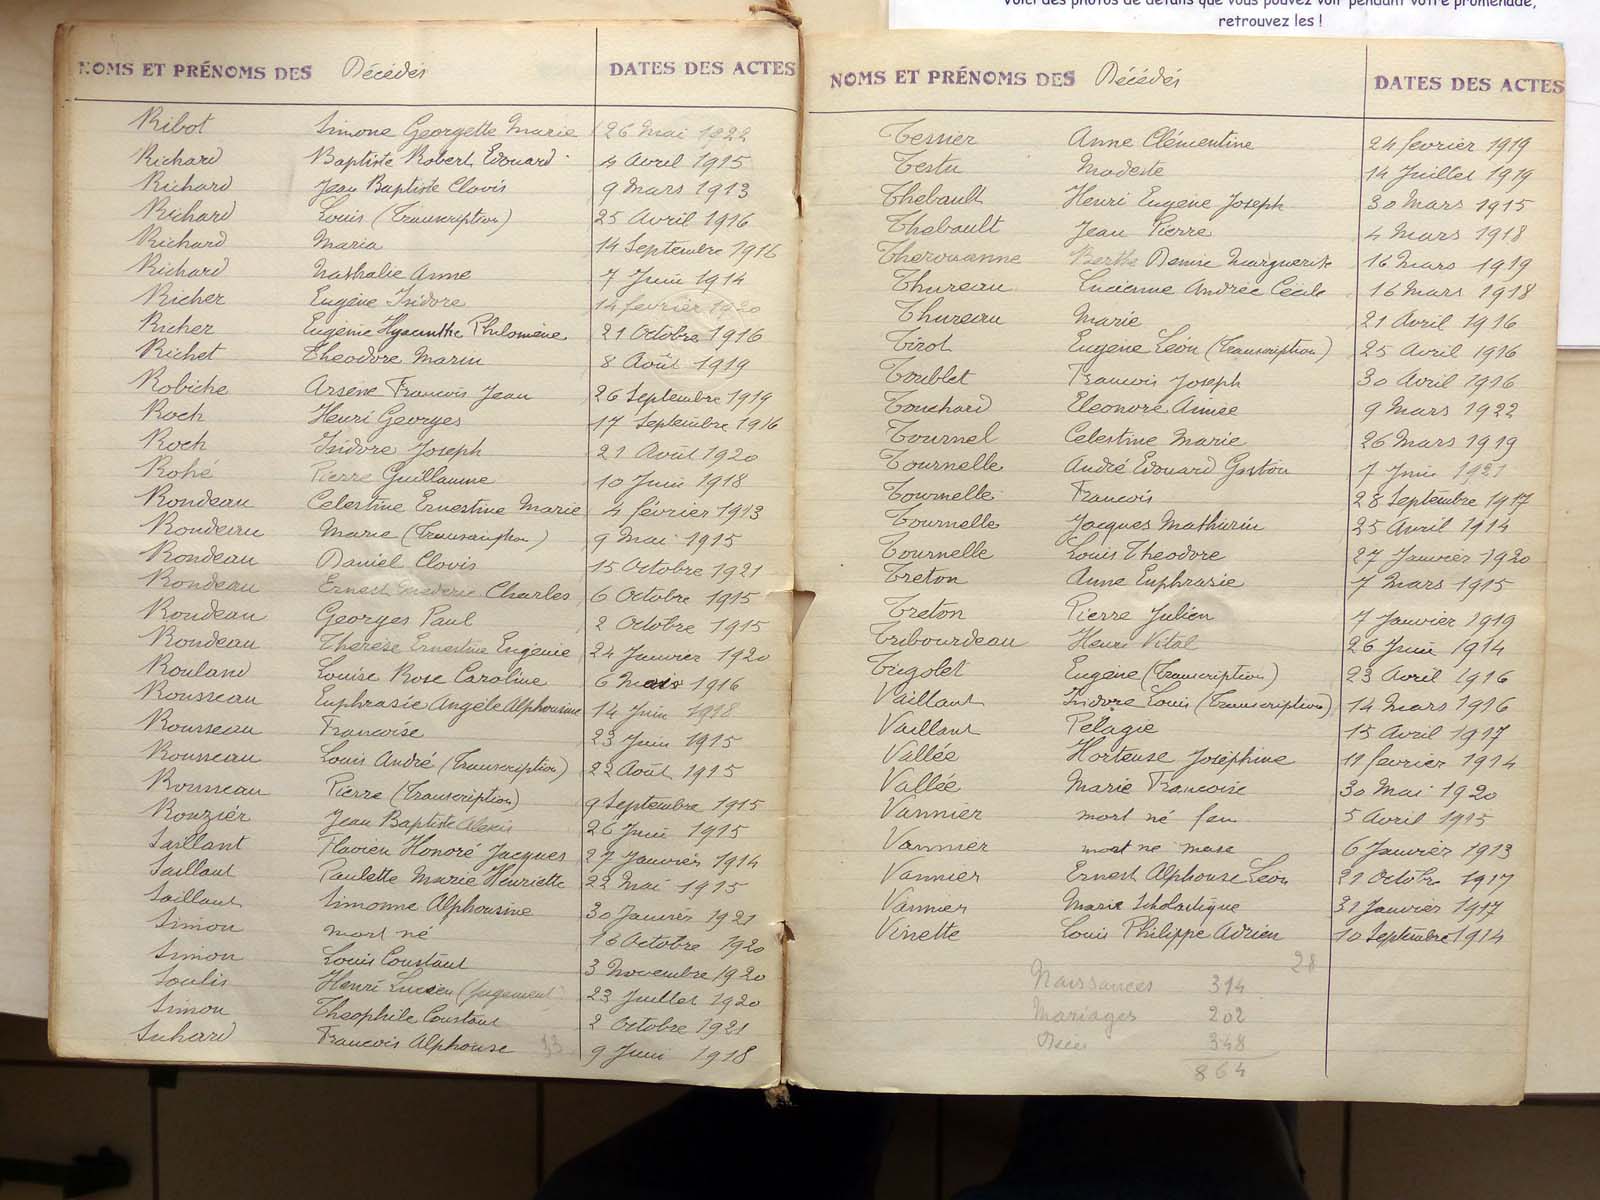 Voici des photos de détails que vous pouvez voir pendant votre promenade,
retrouvez les !
NOMS ET PRÉNOMS DES Décédés DATES DES ACTES
Ribot Simone Georgette Marie 26 Mai 1922
Richard Baptiste Robert Edouard 4 Avril 1915
Richard Jean Baptiste Clovis 9 Mars 1913
Richard Louis (Transcription) 25 Avril 1916
Richard Maria 14 Septembre 1916
Richard Nathalie Anne 7 Juin 1914
Richer Eugène Isidore 14 février 1920
Richer Eugénie Hyacinthe Philomène 21 Octobre 1916
Richet Théodore Marin 8 Août 1919
Robiche Arsène François Jean 26 Septembre 1919
Roch Henri Georges 17 Septembre 1916
Roch Isidore Joseph 21 Août 1920
Rohé Pierre Guillaume 10 Juin 1918
Rondeau Celestine Ernestine Marie 4 février 1913
Rondeau Marie (Transcription) 9 Mai 1915
Rondeau Daniel Clovis 15 Octobre 1921
Rondeau Ernest Charles 6 Octobre 1915
Rondeau Georges Paul 2 Octobre 1915
Rondeau Thérèse Ernestine Eugénie 24 Janvier 1920
Rouland Louise Rose Caroline 6 Mars 1916
Rousseau Euphrasie Angèle Alphonsine 14 Juin 1918
Rousseau Francoise 23 Juin 1915
Rousseau Louis André (Transcription) 22 Août 1915
Rousseau Pierre (Transcription) 9 Septembre 1915
Rouzier Jean Baptiste Alexis 26 Juin 1915
Saillant Flavien Honoré Jacques 27 Janvier 1914
Saillant Paulette Marie Henriette 22 Mai 1915
Saillant Simonne Alphonsine 30 Janvier 1921
Simon mort né 18 Octobre 1920
Simon Louis Constant 3 Novembre 1920
Soulis Henri Lucien (Jugement) 23 Juillet 1920
Simon Théophile Constant 2 Octobre 1921
Suhard Francois Alphonse 33 9 Juin 1918
NOMS ET PRÉNOMS DES Décédés DATES DES ACTES
Tessier Anne Clémentine 24 février 1919
Testu Modeste 14 Juillet 1919
Thébault Henri Eugène Joseph 30 Mars 1915
Thébault Jean Pierre 4 Mars 1918
Therouanne Berthe Denise Marguerite 16 Mars 1919
Thureau Lucienne Andrée Cécile 16 Mars 1918
Thureau Marie 21 Avril 1916
Tirot Eugène Léon (Transcription) 25 Avril 1916
Toublet Francois Joseph 30 Avril 1916
Touchard Eléonore Aimée 9 Mars 1922
Tournel Celestine Marie 26 Mars 1919
Tournelle André Edouard Gaston 7 Juin 1921
Tournelle Francois 28 Septembre 1917
Tournelle Jacques Mathurin 25 Avril 1914
Tournelle Louis Théodore 27 Janvier 1920
Treton Anne Euphrasie 7 Mars 1915
Treton Pierre Julien 7 Janvier 1919
Tribourdeau Henri Vital 26 Juin 1914
Trigolet Eugène (Transcription) 23 Avril 1916
Vaillant Isidore Louis (Transcription) 14 Mars 1916
Vaillant Pélagie 15 Avril 1917
Vallée Hortense Joséphine 11 février 1914
Vallée Marie Francoise 30 Mai 1920
Vannier mort né fem 5 Avril 1915
Vannier mort né masc 6 Janvier 1913
Vannier Ernest Alphonse Léon 21 Octobre 1917
Vannier Marie Scholastique 31 Janvier 1917
Vinette Louis Philippe Adrien 10 Septembre 1914
28
Naissances 314
Mariages 202
Décès 348
864